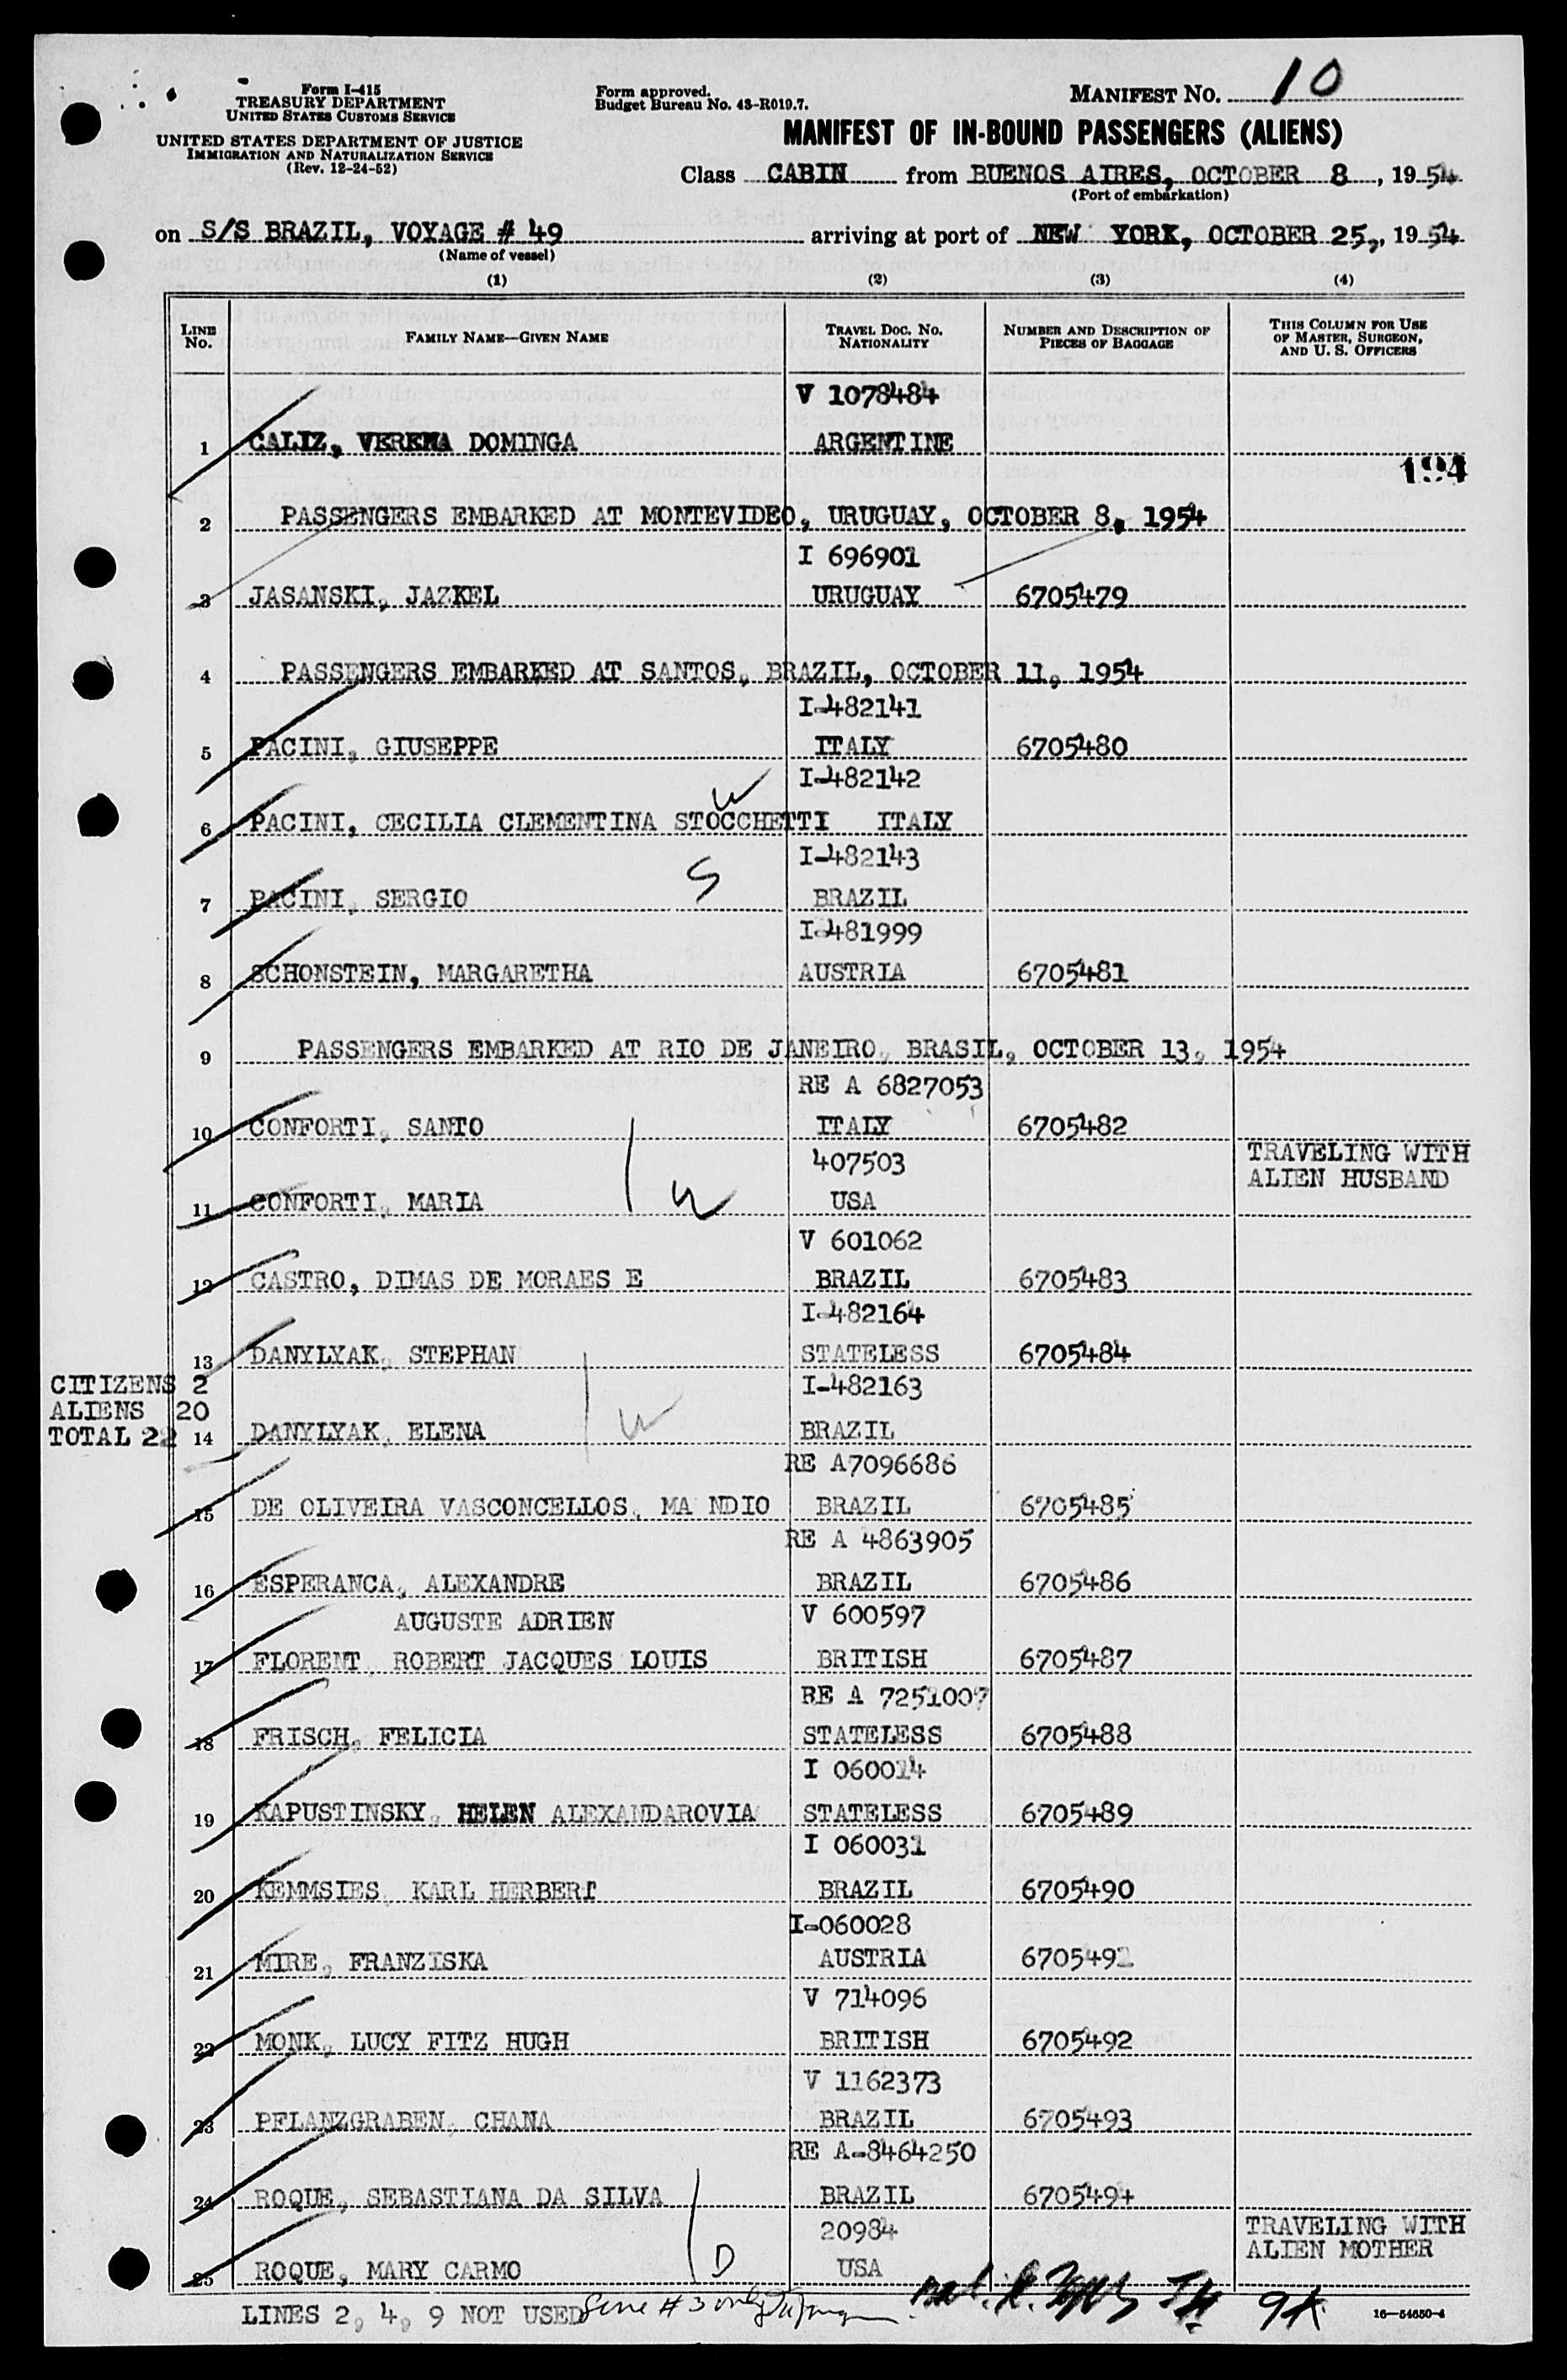 Form I-415
TREASURY DEPARTMENT
UNITED STATES CUSTOMS SERVICE
UNITED STATES DEPARTMENT OF JUSTICE
IMMIGRATION AND NATURALIZATION SERVICE
(Rev. 12-24-52)
Form approved.
Budget Bureau No. 43-R019.7.
MANIFEST NO. 10
MANIFEST OF IN-BOUND PASSENGERS (ALIENS)
Class CABIN from BUENOS AIRES, OCTOBER 8, 1954
(Port of embarkation)
on S/S BRAZIL, VOYAGE # 49 arriving at port of NEW YORK, OCTOBER 25,, 1954
(Name of vessel)
(1) (2) (3) (4)
LINE No. FAMILY NAME—GIVEN NAME TRAVEL DOC. NO. NATIONALITY NUMBER AND DESCRIPTION OF PIECES OF BAGGAGE THIS COLUMN FOR USE OF MASTER, SURGEON, AND U. S. OFFICERS
V 1078484
1 CALIZ, VERENA DOMINGA ARGENTINE
194
2 PASSENGERS EMBARKED AT MONTEVIDEO, URUGUAY, OCTOBER 8, 1954
I 696901
3 JASANSKI, JAZKEL URUGUAY 6705479
4 PASSENGERS EMBARKED AT SANTOS, BRAZIL, OCTOBER 11, 1954
I-482141
5 PACINI, GIUSEPPE ITALY 6705480
W I-482142
6 PACINI, CECILIA CLEMENTINA STOCCHETTI ITALY
I-482143
7 PACINI, SERGIO S BRAZIL
I-481999
8 SCHONSTEIN, MARGARETHA AUSTRIA 6705481
9 PASSENGERS EMBARKED AT RIO DE JANEIRO, BRASIL, OCTOBER 13, 1954
RE A 6827053
10 CONFORTI, SANTO ITALY 6705482
407503 TRAVELING WITH
ALIEN HUSBAND
11 CONFORTI, MARIA W USA
V 601062
12 CASTRO, DIMAS DE MORAES E BRAZIL 6705483
I-482164
13 DANYLYAK, STEPHAN STATELESS 6705484
CITIZENS 2
ALIENS 20
TOTAL 22
I-482163
14 DANYLYAK, ELENA W BRAZIL
RE A7096686
15 DE OLIVEIRA VASCONCELLOS, MA NDIO BRAZIL 6705485
RE A 4863905
16 ESPERANCA, ALEXANDRE BRAZIL 6705486
AUGUSTE ADRIEN V 600597
17 FLORENT, ROBERT JACQUES LOUIS BRITISH 6705487
RE A 7251007
18 FRISCH, FELICIA STATELESS 6705488
I 060014
19 KAPUSTINSKY, HELEN ALEXANDAROVIA STATELESS 6705489
I 060031
20 KEMMSIES, KARL HERBERT BRAZIL 6705490
I-060028
21 MIRE, FRANZISKA AUSTRIA 6705491
V 714096
22 MONK, LUCY FITZ HUGH BRITISH 6705492
V 1162373
23 PFLANZGRABEN, CHANA BRAZIL 6705493
RE A-8464250
24 ROQUE, SEBASTIANA DA SILVA BRAZIL 6705494
20984 TRAVELING WITH
ALIEN MOTHER
25 ROQUE, MARY CARMO D USA
LINES 2, 4, 9 NOT USED Line # 3 only
16—54650-4